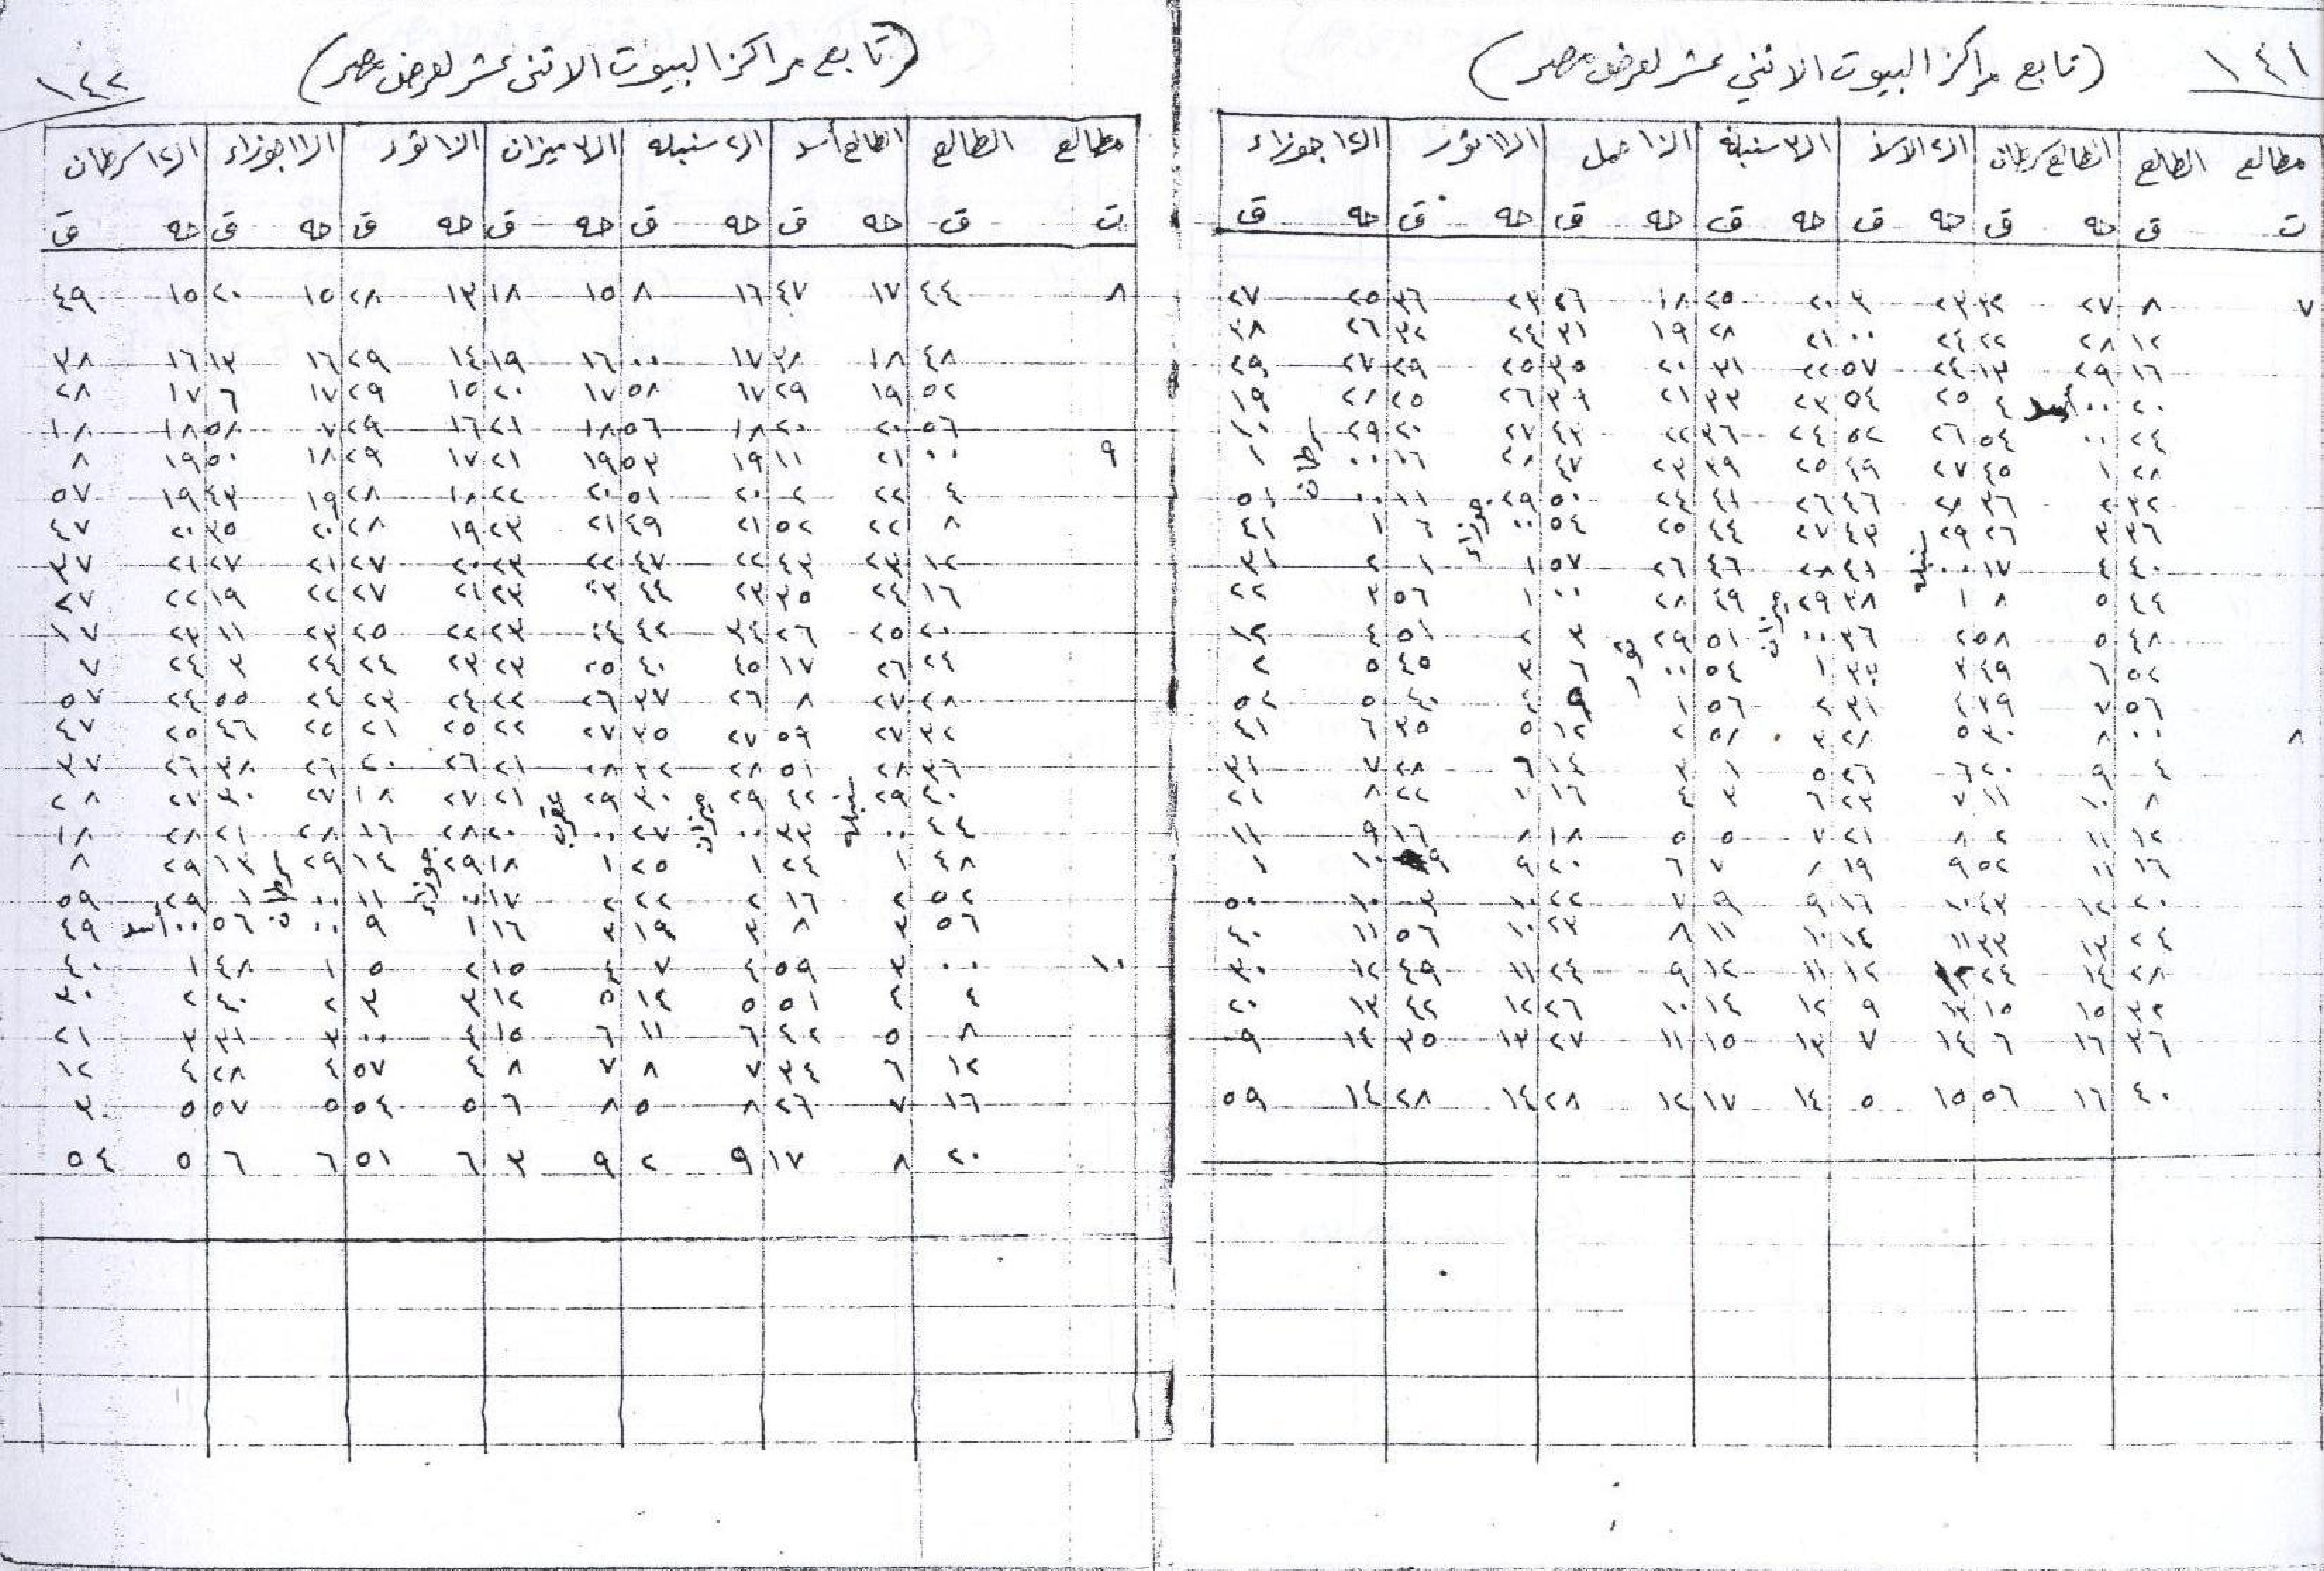 ١٤١ (تابع مراكز البيوت الاثني عشر لعرض مصر)
مطالع الطالع الطالع سرطان ال٢ الأسد ال٣ سنبلة ال١٠ حمل ال١١ ثور ال١٢ جوزاء
ت ق حه ق حه ق حه ق حه ق حه ق حه ق
٧ ٨ ٢٧ ٣٢ ٢٣ ٣ ٢٠ ٢٥ ١٨ ٢٦ ٢٣ ٣٦ ٢٥ ٢٧
١٢ ٢٨ ٢٢ ٢٤ ٠٠ ٢١ ٢٨ ١٩ ٣١ ٢٤ ٣٢ ٢٦ ٣٨
١٦ ٢٩ ١٣ ٢٤ ٥٧ ٢٢ ٣١ ٢٠ ٣٥ ٢٥ ٢٩ ٢٧ ٢٩
٢٠ ٠٠ أسد ٤ ٢٥ ٥٤ ٢٣ ٣٣ ٢١ ٣٩ ٢٦ ٢٥ ٢٨ ١٩
٢٤ ٠٠ ٥٤ ٢٦ ٥٢ ٢٤ ٣٦ ٢٢ ٤٣ ٢٧ ٢٠ ٢٩ ١٠
٢٨ ١ ٤٥ ٢٧ ٤٩ ٢٥ ٣٩ ٢٣ ٤٧ ٢٨ ١٦ ٠٠ سرطان ١
٣٢ ٢ ٣٦ ٢٨ ٤٦ ٢٦ ٤١ ٢٤ ٥٠ ٢٩ ١١ ٠٠ ٥١
٣٦ ٣ ٢٦ ٢٩ ٤٣ ٢٧ ٤٤ ٢٥ ٥٤ ٠٠ جوزاء ٦ ١ ٤٢
٤٠ ٤ ١٧ ٠٠ سنبله ٤١ ٢٨ ٤٦ ٢٦ ٥٧ ١ ١ ٢ ٣١
٤٤ ٥ ٨ ١ ٣٨ ٢٩ ٤٩ ٢٨ ٠٠ ١ ٥٦ ٣ ٢٢
٤٨ ٥ ٥٨ ٢ ٣٦ ٠٠ ميزان ٥١ ٢٩ ٣ ٢ ٥١ ٤ ١٢
٥٢ ٦ ٤٩ ٣ ١ ٥٤ ٠٠ ثور ٦ ٣ ٤٥ ٥ ٢
٥٦ ٧ ٣٩ ٤ ٣١ ٢ ٥٦ ١ ٩ ٤ ٤٠ ٥ ٥٢
٨ ٠٠ ٨ ٣٠ ٥ ٢٨ ٣ ٥٨ ٢ ١٢ ٥ ٣٥ ٦ ٤١
٤ ٩ ٢٠ ٦ ٢٦ ٥ ١ ٣ ١٤ ٦ ٢٨ ٧ ٣١
٨ ١٠ ١١ ٧ ٢٣ ٦ ٣ ٤ ١٦ ٢٢ ٨ ٢١
١٢ ١١ ٢ ٨ ٢١ ٧ ٥ ٥ ١٨ ٨ ١٦ ٩ ١١
١٦ ١١ ٥٢ ٩ ١٩ ٨ ٧ ٦ ٢٠ ٩ ٩ ١٠ ١
٢٠ ١٢ ٤٣ ١٠ ١٦ ٩ ٩ ٧ ٢٢ ١٠ ٣ ١٠ ٥٠
٢٤ ١٣ ٣٣ ١١ ١٤ ١٠ ١١ ٨ ٢٣ ١٠ ٥٦ ١١ ٤٠
٢٨ ١٤ ٢٤ ١٢ ١٢ ١١ ١٢ ٩ ٢٤ ١١ ٤٩ ١٢ ٣٠
٣٢ ١٥ ١٥ ١٣ ٩ ١٢ ١٤ ١٠ ٢٦ ١٢ ٤٢ ١٣ ٢٠
٣٦ ١٦ ٦ ١٤ ٧ ١٣ ١٥ ١١ ٢٧ ١٣ ٣٥ ١٤ ٩
٤٠ ١٦ ٥٦ ١٥ ٥ ١٤ ١٧ ١٢ ٢٨ ١٤ ٢٨ ١٤ ٥٩
(تابع مراكز البيوت الاثنى عشر لعرض مصر) ١٤٢
مطالع الطالع الطالع أسد ال٢ سنبله ال٣ ميزان ال١٠ ثور ال١١ جوزاء ال١٢ سرطان
ت ق حه ق حه ق حه ق حه ق حه ق حه ق
٨ ٤٤ ١٧ ٤٧ ١٦ ٨ ١٥ ١٨ ١٣ ٢٨ ١٥ ٢٠ ١٥ ٤٩
٤٨ ١٨ ٣٨ ١٧ ٠٠ ١٦ ١٩ ١٤ ٢٩ ١٦ ١٣ ١٦ ٣٨
٥٢ ١٩ ٢٩ ١٧ ٥٨ ١٧ ٢٠ ١٥ ٢٩ ١٧ ٦ ١٧ ٢٨
٥٦ ٢٠ ٢٠ ١٨ ٥٦ ١٨ ٢١ ١٦ ٢٩ ٧ ٥٨ ١٨ ١٨
٩ ٠٠ ٢١ ١١ ١٩ ٥٣ ١٩ ٢١ ١٧ ٢٩ ١٨ ٥٠ ١٩ ٨
٤ ٢٢ ٢ ٢٠ ٥١ ٢٠ ٢٢ ١٨ ٢٨ ١٩ ٤٣ ١٩ ٥٧
٨ ٢٢ ٥٢ ٢١ ٤٩ ٢١ ٢٣ ١٩ ٢٨ ٢٠ ٣٥ ٢٠ ٤٧
١٢ ٢٣ ٤٣ ٢٢ ٤٧ ٢٢ ٢٣ ٢٠ ٢٧ ٢١ ٢٧ ٢١ ٣٧
١٦ ٢٤ ٣٥ ٢٣ ٤٤ ٢٣ ٢٣ ٢١ ٢٧ ٢٢ ١٩ ٢٢ ٢٧
٢٠ ٢٥ ٢٦ ٢٤ ٤٢ ٢٤ ٢٣ ٢٢ ٢٥ ٢٣ ١١ ٢٣ ١٧
٢٤ ٢٦ ١٧ ٢٥ ٤٠ ٢٥ ٢٣ ٢٣ ٢٤ ٢٤ ٣ ٢٤ ٧
٢٨ ٢٧ ٨ ٢٦ ٣٧ ٢٦ ٢٢ ٢٤ ٢٣ ٢٤ ٥٥ ٢٤ ٥٧
٣٢ ٢٧ ٥٩ ٢٧ ٣٥ ٢٧ ٢٢ ٢٥ ٢١ ٢٥ ٤٦ ٢٥ ٤٧
٣٦ ٢٨ ٥١ ٢٨ ٣٢ ٢٨ ٢١ ٢٦ ٢٠ ٢٦ ٣٨ ٢٦ ٣٧
٤٠ ٢٩ ٤٢ ٢٩ ٣٠ ٢٩ ٢١ ٢٧ ١٨ ٢٧ ٣٠ ٢٧ ٢٨
٤٤ ٠٠ سنبله ٣٣ ٠٠ ميزان ٢٧ ٠٠ عقرب ٢٠ ٢٨ ١٦ ٢٨ ٢١ ٢٨ ١٨
٤٨ ١ ٢٤ ١ ٢٥ ١ ١٨ ٢٩ ١٤ ٢٩ ١٣ ٢٩ ٨
٥٢ ٢ ١٦ ٢ ٢٢ ٢ ١٧ ٠٠ جوزاء ١١ ٠٠ سرطان ١ ٢٩ ٥٩
٥٦ ٣ ٨ ٣ ١٩ ٣ ١٦ ١ ٩ ٠٠ ٥٦ ٠٠ أسد ٤٩
١٠ ٠٠ ٣ ٥٩ ٤ ٧ ٤ ١٥ ٢ ٥ ١ ٤٨ ١ ٤٠
٤ ٤ ٥١ ٥ ١٤ ٥ ١٢ ٣ ٣ ٢ ٤٠ ٢ ٣٠
٨ ٥ ٤٢ ٦ ١١ ٦ ١٥ ٤ ٠٠ ٣ ٣١ ٣ ٢١
١٢ ٦ ٣٤ ٧ ٨ ٧ ٨ ٤ ٥٧ ٤ ٢٨ ٤ ١٢
١٦ ٧ ٢٦ ٨ ٥ ٨ ٦ ٥ ٥٤ ٥ ٥٧ ٥ ٣
٢٠ ٨ ١٧ ٩ ٢ ٩ ٣ ٦ ٥١ ٦ ٦ ٥ ٥٤